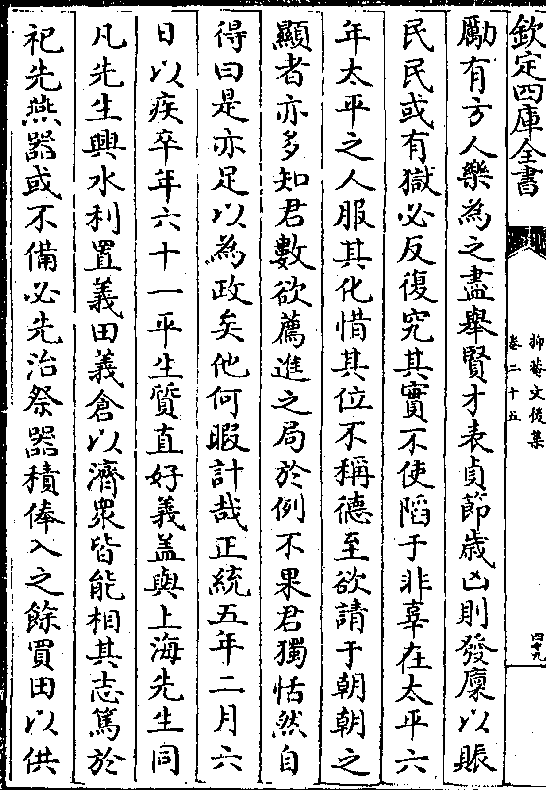 欽定四庫全書
抑菴文後集
卷二十五
四十九
勵有方人樂為之盡舉賢才表貞節歲凶則發廩以賑
民民或有獄必反復究其實不使陷于非辜在太平六
年太平之人服其化惜其位不稱德至欲請于朝朝之
顯者亦多知君數欲薦進之局於例不果君獨恬然自
得曰是亦足以為政矣他何暇計哉正統五年二月六
日以疾卒年六十一平生質直好義盖與上海先生同
凡先生興水利置義田義倉以濟衆皆能相其志篤於
祀先燕器或不備必先治祭器積俸入之餘買田以供